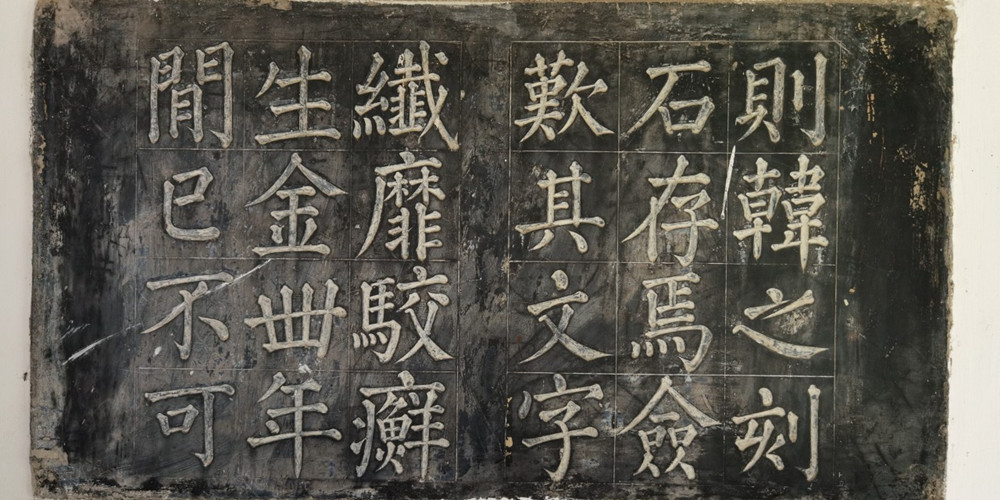 則韓之刻
石存焉僉
歎其文字
纖靡駮癬
生金丗年
間已不可